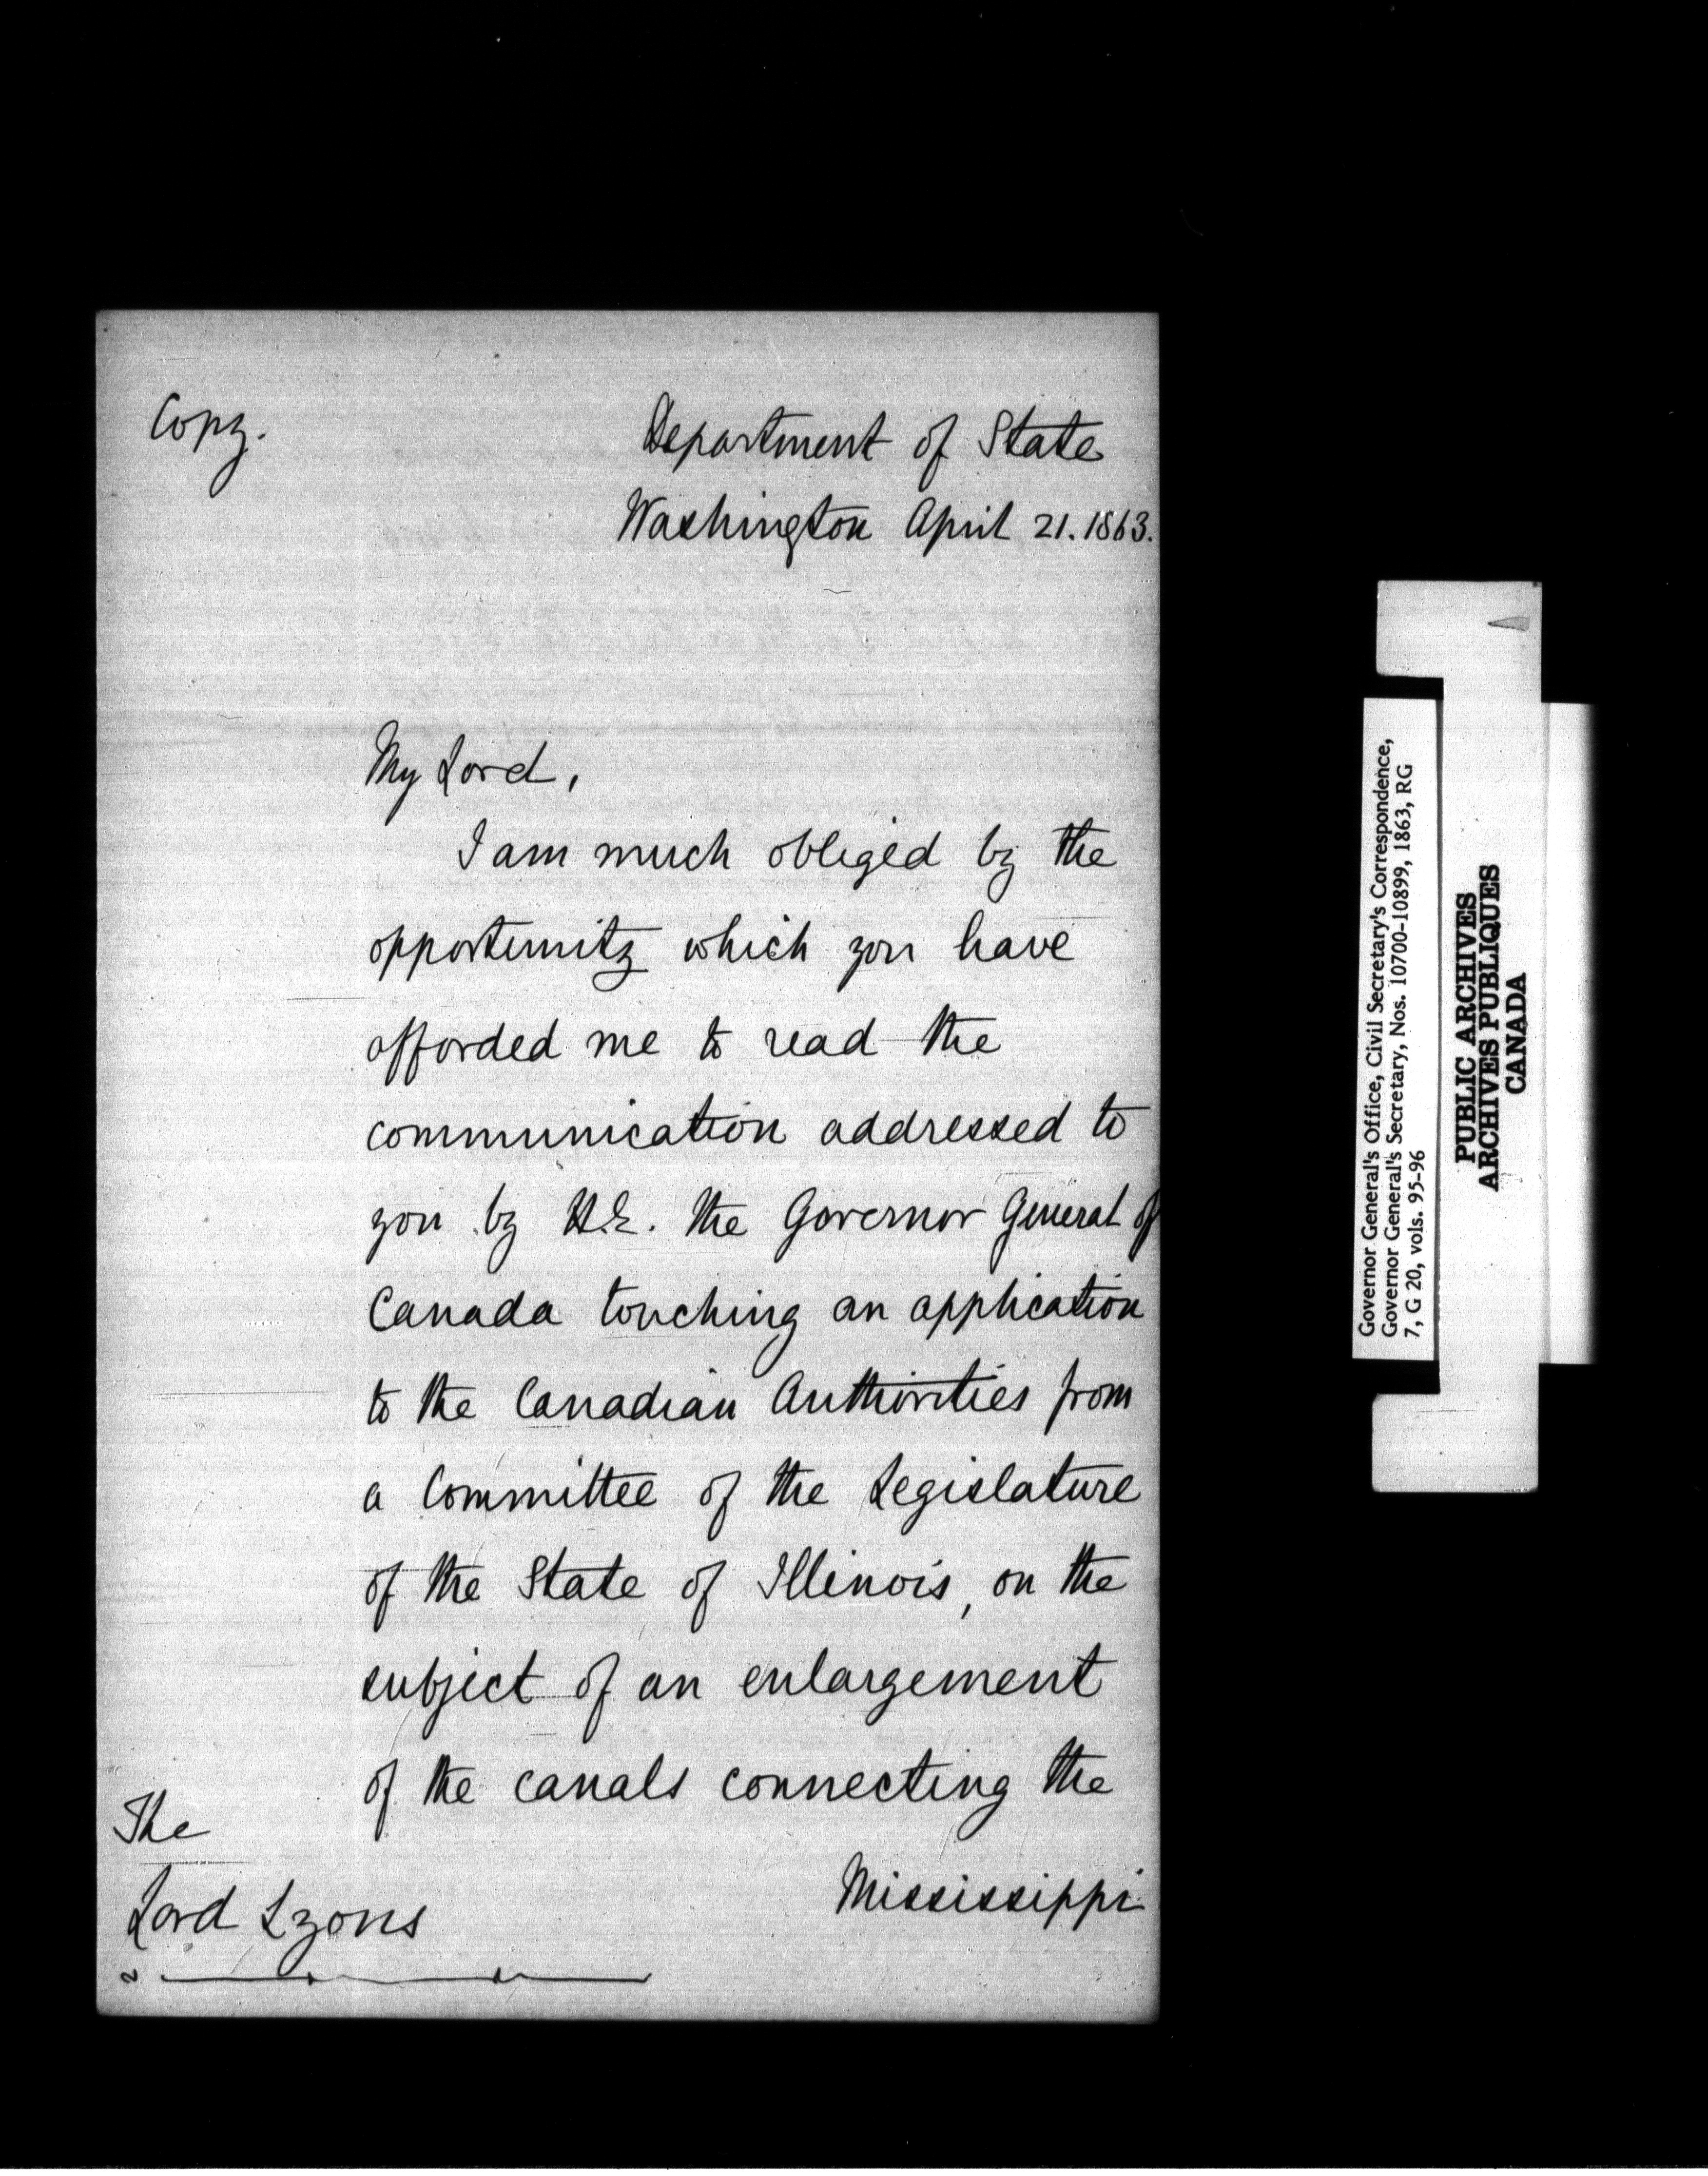 Copy.
Department of State
Washington April 21. 1863.
My Lord,
I am much obliged by the
opportunity which you have
afforded me to read the
communication addressed to
you by H.E. the Governor General of
Canada touching an application
to the Canadian Authorities from
a Committee of the Legislature
of the State of Illinois, on the
subject of an enlargement
of the canals connecting the
Mississippi
The
Lord Lyons
Governor General's Office, Civil Secretary's Correspondence,
Governor General's Secretary, Nos. 10700-10899, 1863, RG
7, G 20, vols. 95-96
PUBLIC ARCHIVES
ARCHIVES PUBLIQUES
CANADA